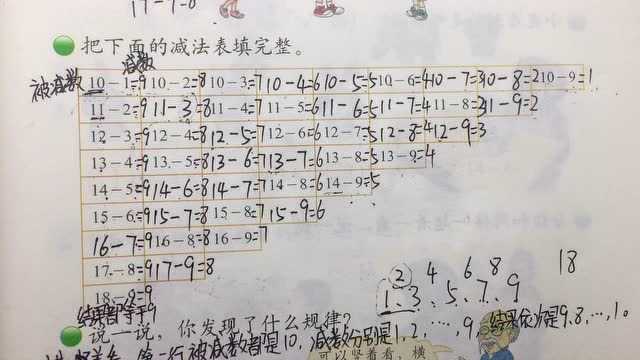 17-7=8
把下面的减法表填完整。
减数
被减数
10-1=9 10-2=8 10-3=7 10-4=6 10-5=5 10-6=4 10-7=3 10-8=2 10-9=1
11-2=9 11-3=8 11-4=7 11-5=6 11-6=5 11-7=4 11-8=3 11-9=2
12-3=9 12-4=8 12-5=7 12-6=6 12-7=5 12-8=4 12-9=3
13-4=9 13-5=8 13-6=7 13-7=6 13-8=5 13-9=4
14-5=9 14-6=8 14-7=7 14-8=6 14-9=5
15-6=9 15-7=8 15-8=7 15-9=6
16-7=9 16-8=8 16-9=7
17-8=9 17-9=8
18-9=9
2 4 6 8 18
1、3、5、7、9
结果都等于9
说一说，你发现了什么规律？
第一行被减数都是10，减数分别是1,2,…,9，结果依次是9,8,…,1。
可以竖着看，横